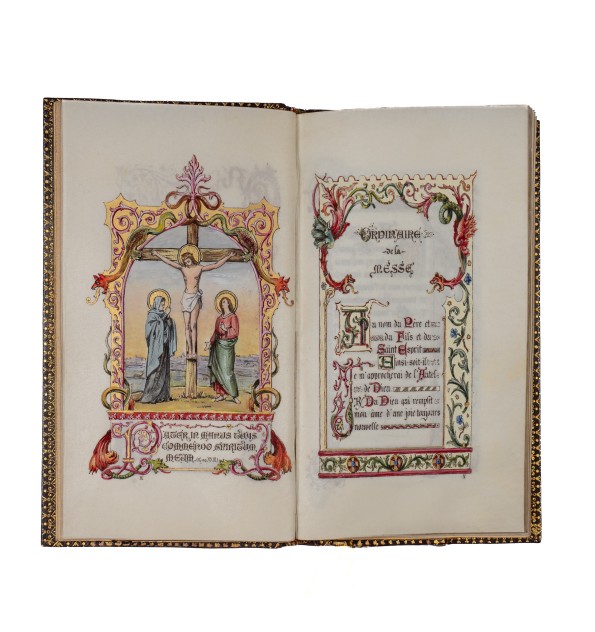 Pater, in manus tuas
commendo spiritum
meum.
Ordinaire
de la
Messe
Au nom du Père et
du Fils et du
Saint Esprit
Ainsi-soit-il
Je m'approcherai de l'Autel
de Dieu
R. Du Dieu qui remplit
mon âme d'une joie toujours
nouvelle